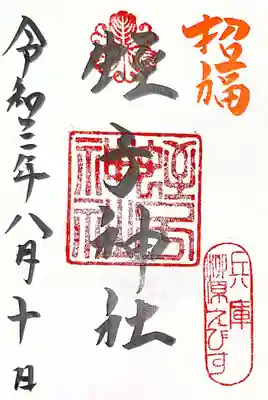 招福
蛭子神社
令和三年八月十日
兵庫
柳原えびす